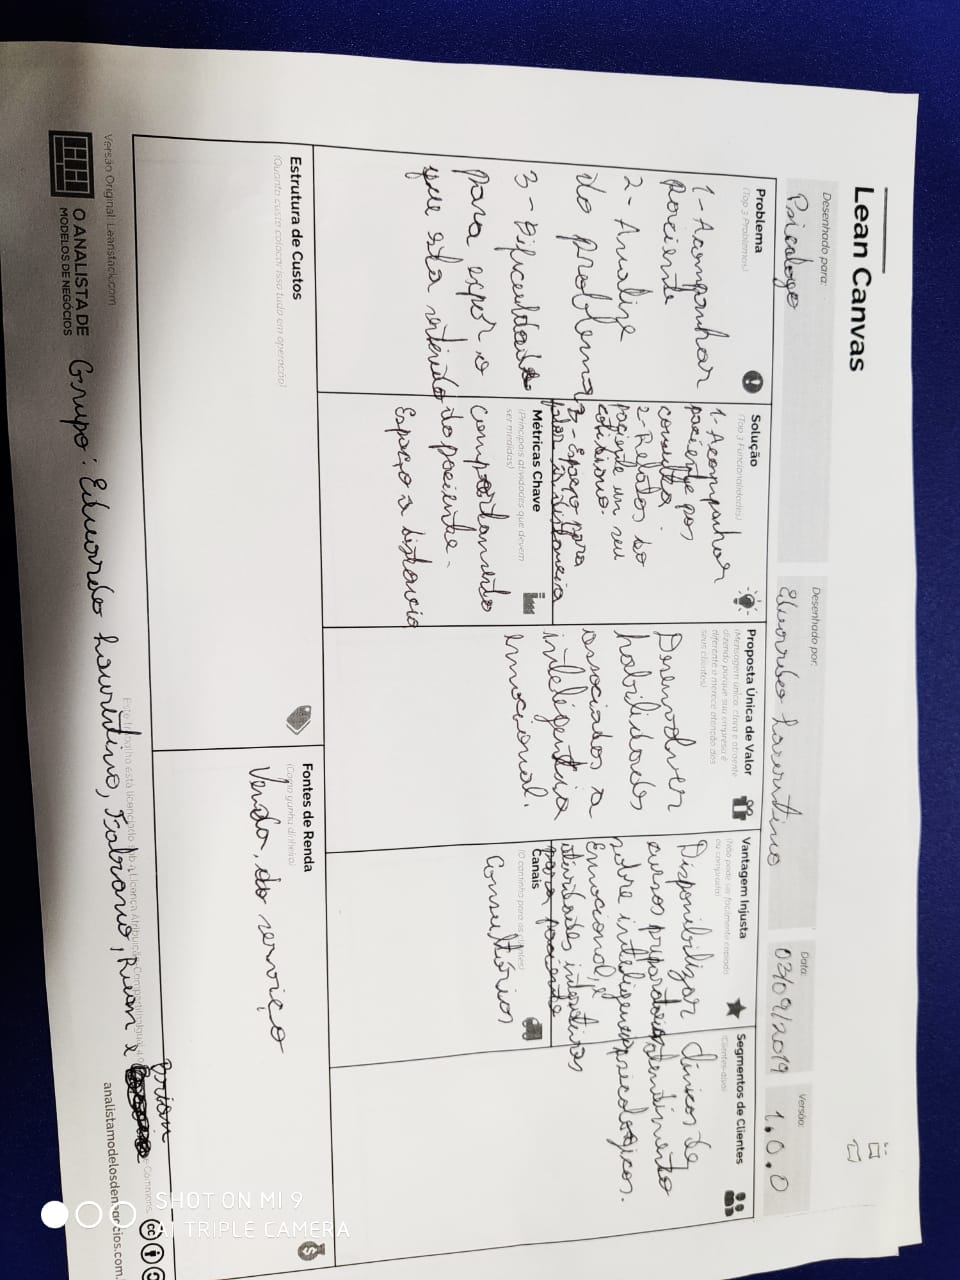 Lean Canvas
Desenhado para:
Psicologo
Desenhado por:
Eduardo Laurentino
Data:
03/09/2019
Versão:
1.0.0
Problema
(Top 3 Problemas)
1 - Acompanhar
paciente
2 - Analize
do problema
3 - Dificuldade
para expor o
que esta sentido
Solução
(Top 3 Funcionalidades)
1- Acompanhar
paciente pos
consulta.
2- Relatos do
paciente em seu
cotidiano.
3 - Espaço para
Métricas Chave
(Principais atividades que devem
ser medidas)
Comportamento
do paciente.
Espaço a distavia
Proposta Única de Valor
(Mensagem única, clara e atraente
dizendo porque sua empresa é
diferente e merece atenção dos
seus clientes)
Desenvolver
habilidades
associados a
inteligentcia
emocional.
Vantagem Injusta
(Não pode ser facilmente copiado
ou comprado)
Disponibilizar
cursos
sobre
Emocional,
atividades
para paciente
Canais
(O caminho para os clientes)
Consultórios
Segmentos de Clientes
(Clientes-alvo)
clinicos de
atendimento
psicologicos.
Estrutura de Custos
(Quanto custa colocar isso tudo em operação)
Fontes de Renda
(Como ganha dinheiro)
Venda, do serviço
Versão Original: Leanstack.com
O ANALISTA DE
MODELOS DE NEGÓCIOS
Grupo: Eduardo Laurentino, Fabiano, Ruan e
Brian
Este trabalho está licenciado sob a Licença Atribuição-CompartilhaIgual
Commons.
analistamodelosdenegocios.com.
SHOT ON MI 9
AI TRIPLE CAMERA